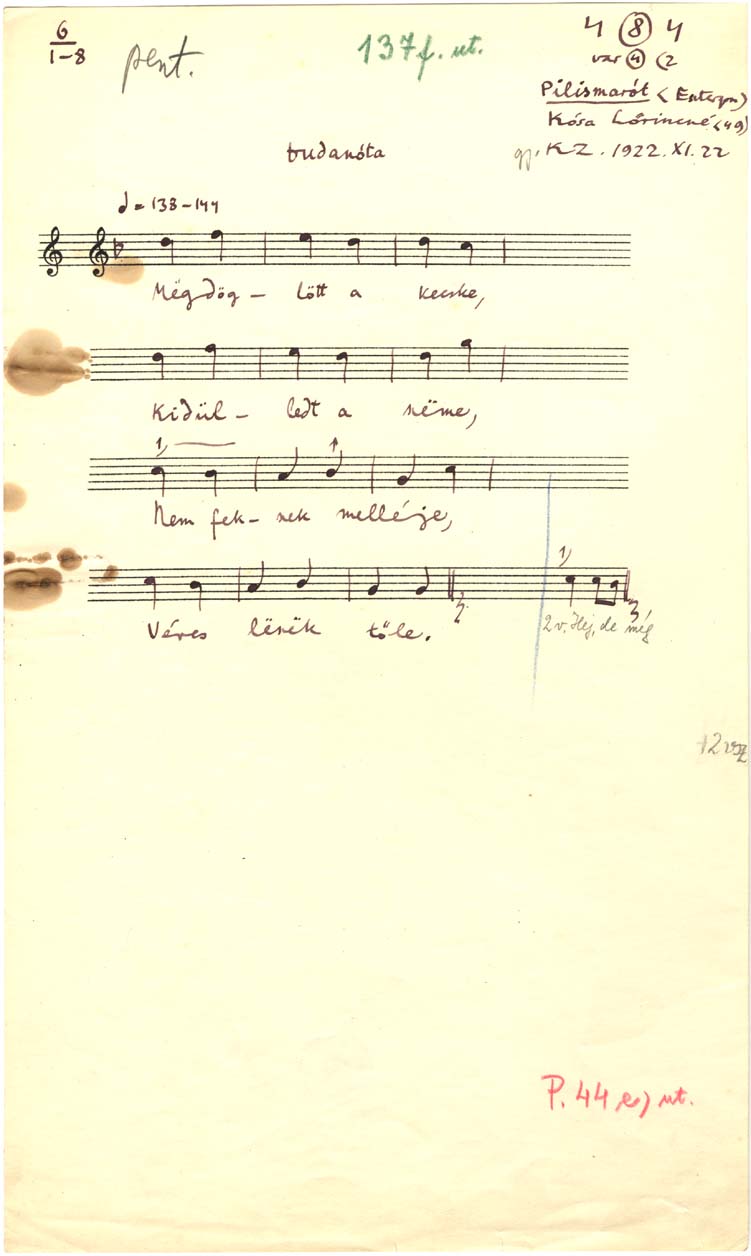 6
1-8
pent.
137f. ut.
4 (8) 4
var (4) (2
Pilismarót (Esztergom)
Kósa Lőrincné (49)
gj. KZ. 1922. XI. 22
dudanóta
= 138-144
Mëgdög- lött a kecske,
Kidül- ledt a szëme,
1)
Nem fek- szek melléje,
1)
Véres lëszëk tőle.
2v. Hej, de még
12 vsz
P. 44 e) ut.